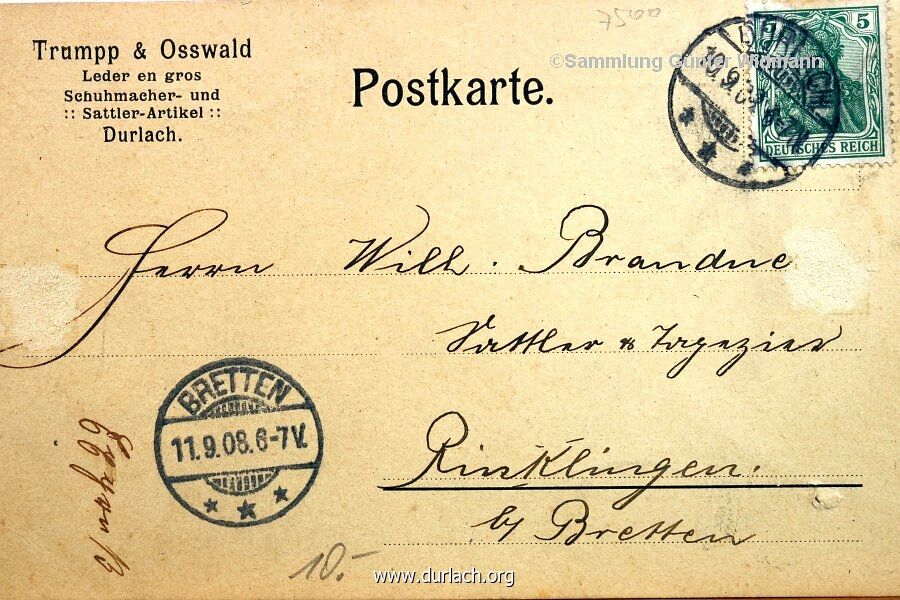 Trumpp & Osswald
Leder en gros
Schuhmacher- und
:: Sattler-Artikel ::
Durlach.
Postkarte.
©Sammlung Günter Widmann
5
DEUTSCHES REICH
DURLACH
10.9.08. 6-7N
Herrn Will. Brandne
Sattler & Tapezier
Rinklingen.
b/ Bretten
BRETTEN
11.9.08.6-7V.
10.-
www.durlach.org